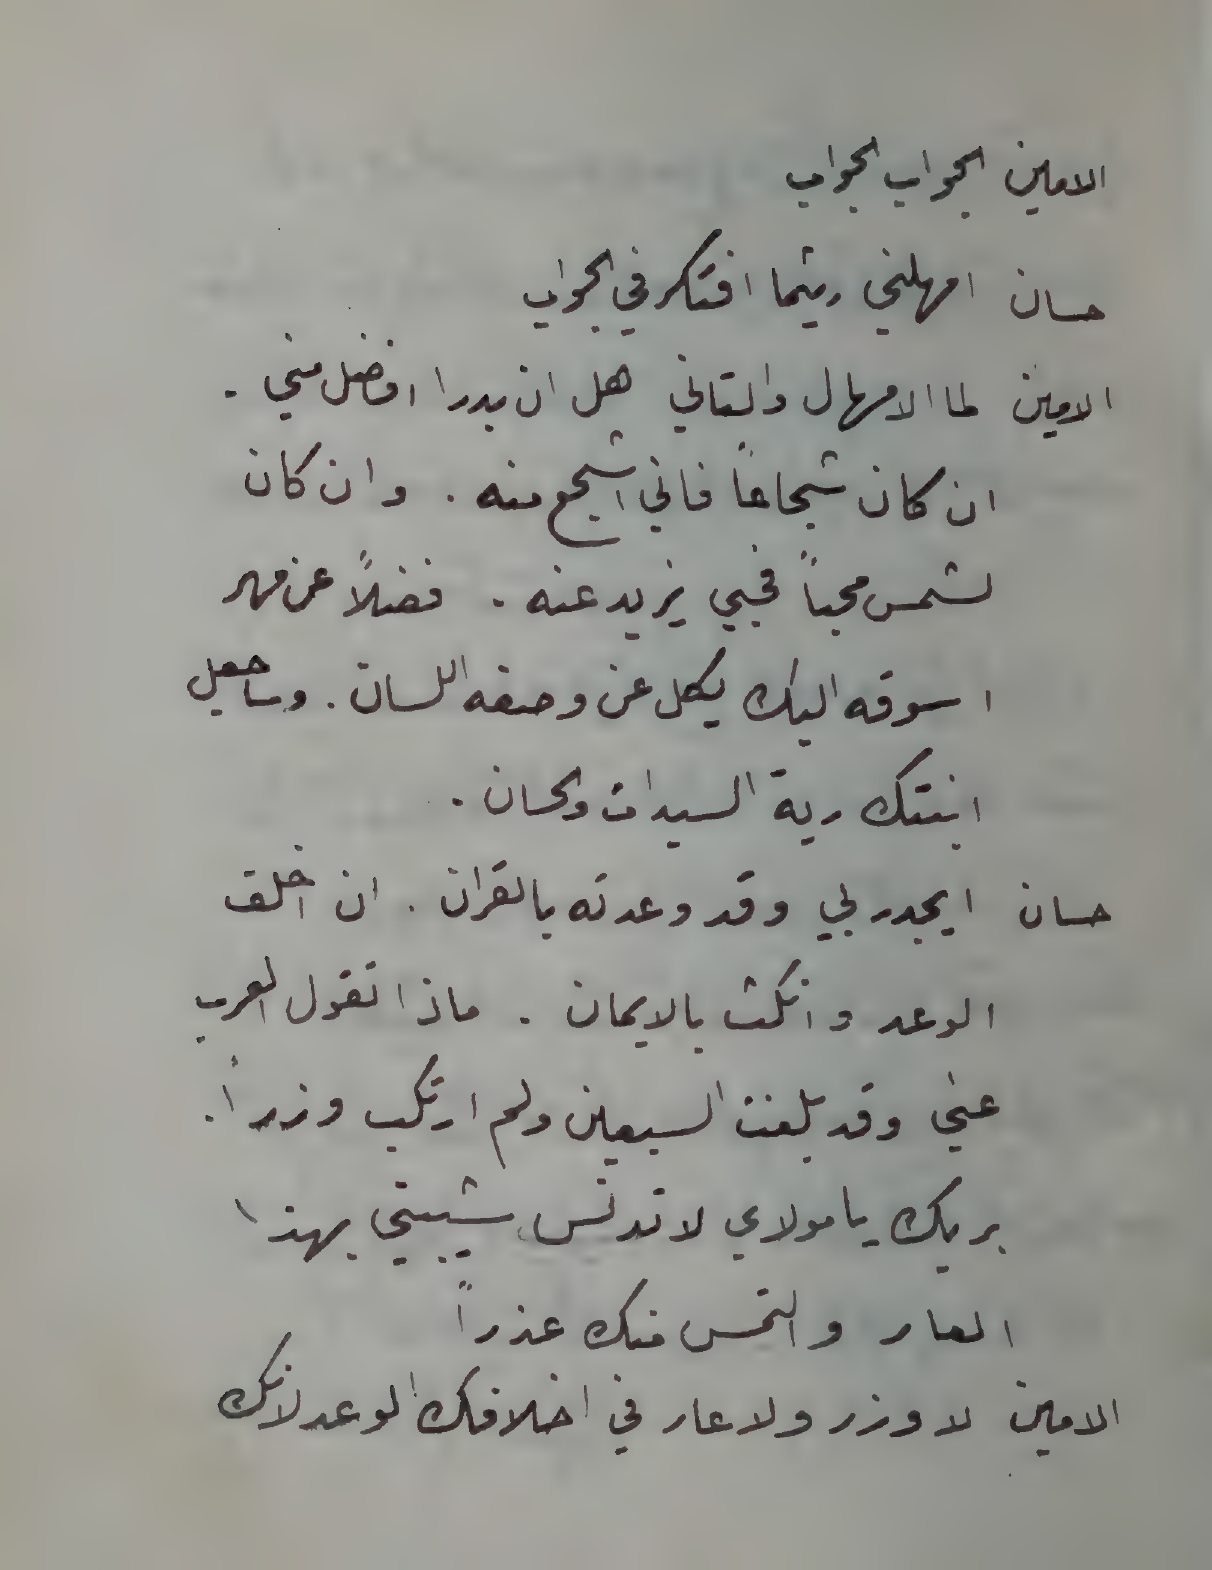 الامين الجواب الجواب
حسان امهلني ريثما افتكر في الجواب
الامين لما الامهال والتاني هل ان بدرا افضل مني .
ان كان شجاعاً فاني اشجع منه . وان كان
لشمس محباً فحبي يزيد عنه . فضلاً عن مهر
اسوقه اليك يكل عن وصفه اللسان . وساجعل
ابنتك رية السيدات والحسان .
حسان ايجدر بي وقد وعدته بالقران . ان اخلف
الوعد وانكث بالايمان . ماذا تقول العرب
عني وقد بلغت السبعين ولم ارتكب وزراً .
بربك يا مولاي لا تدنس شيبتي بهذا
العار والتمس منك عذراً
الامين لا وزر ولا عار في اخلافك الوعد لانك